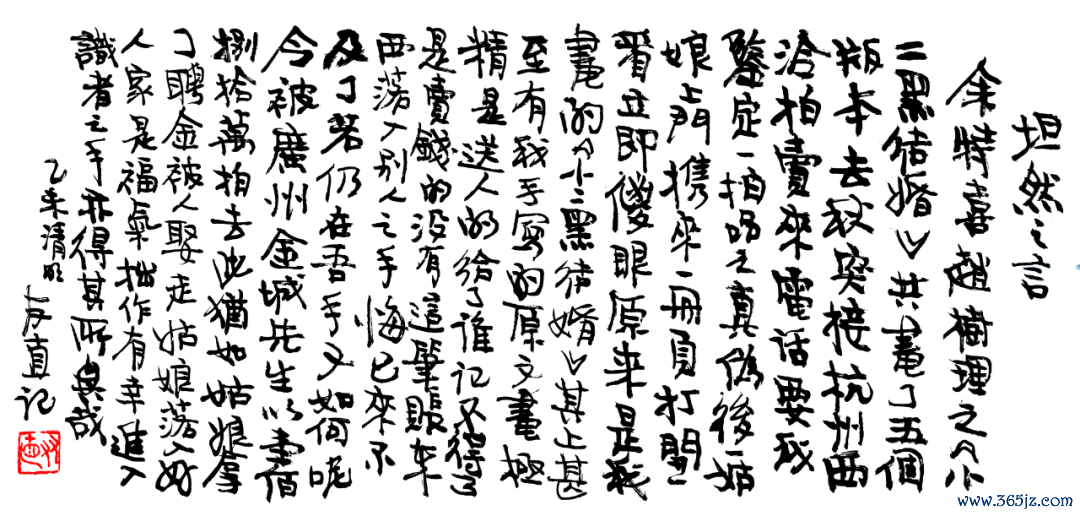 坦然之言
余特喜趙樹理之《小
二黑结婚》共畫了五個
版本去秋突接杭州西
泠拍賣來電话要我
鑒定一拍品之真偽後一姑
娘上門携來一册頁打開一
看立即傻眼原来是我
畫的《小二黑结婚》其上甚
至有我手寫的原文畫極
精是送人的给了谁记不得了
是賣錢的没有這筆賬东
西落入别人之手悔已來不
及了若仍在吾手又如何呢
今被廣州金城先生以壹佰
捌拾萬拍去此猶如姑娘拿
了聘金被人娶走姑娘落入好
人家是福氣拙作有幸進入
識者之手亦得其所矣哉
乙未清明 友直记
www.365jz.com